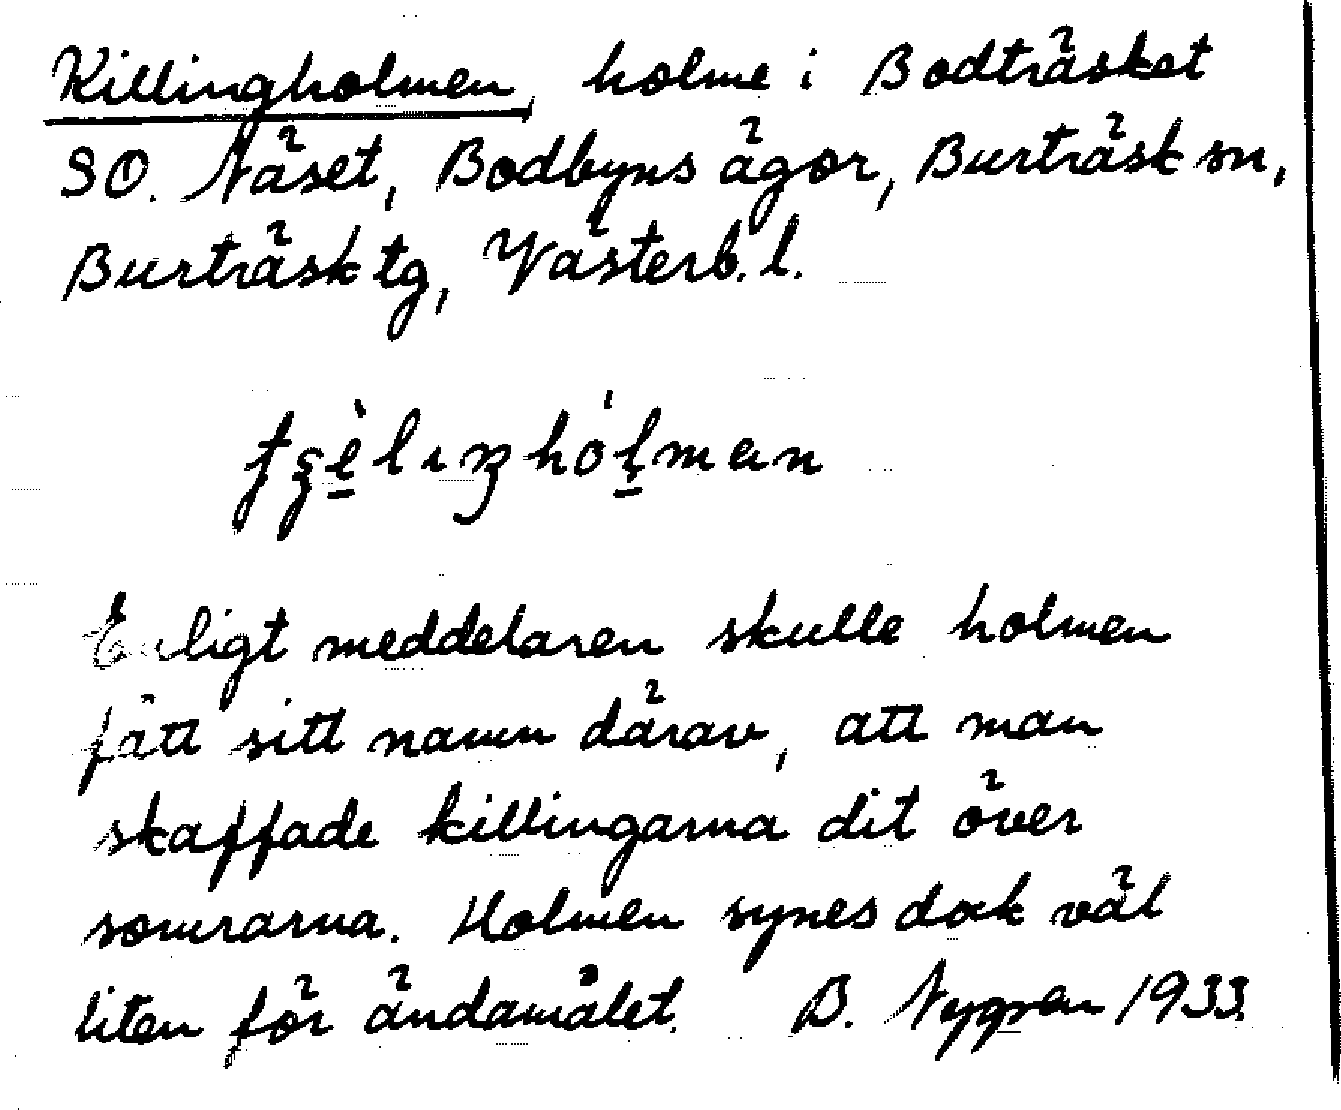 Killingholmen, holme i Bodträsket
SO. Näset, Bodbyns ägor, Burträsk sn,
Burträsk tg, Västerb. l.
Enligt meddelaren skulle holmen
fått sitt namn därav, att man
skaffade killingarna dit över
somrarna. Holmen synes dock väl
liten för ändamålet. B. Nygren 1933.